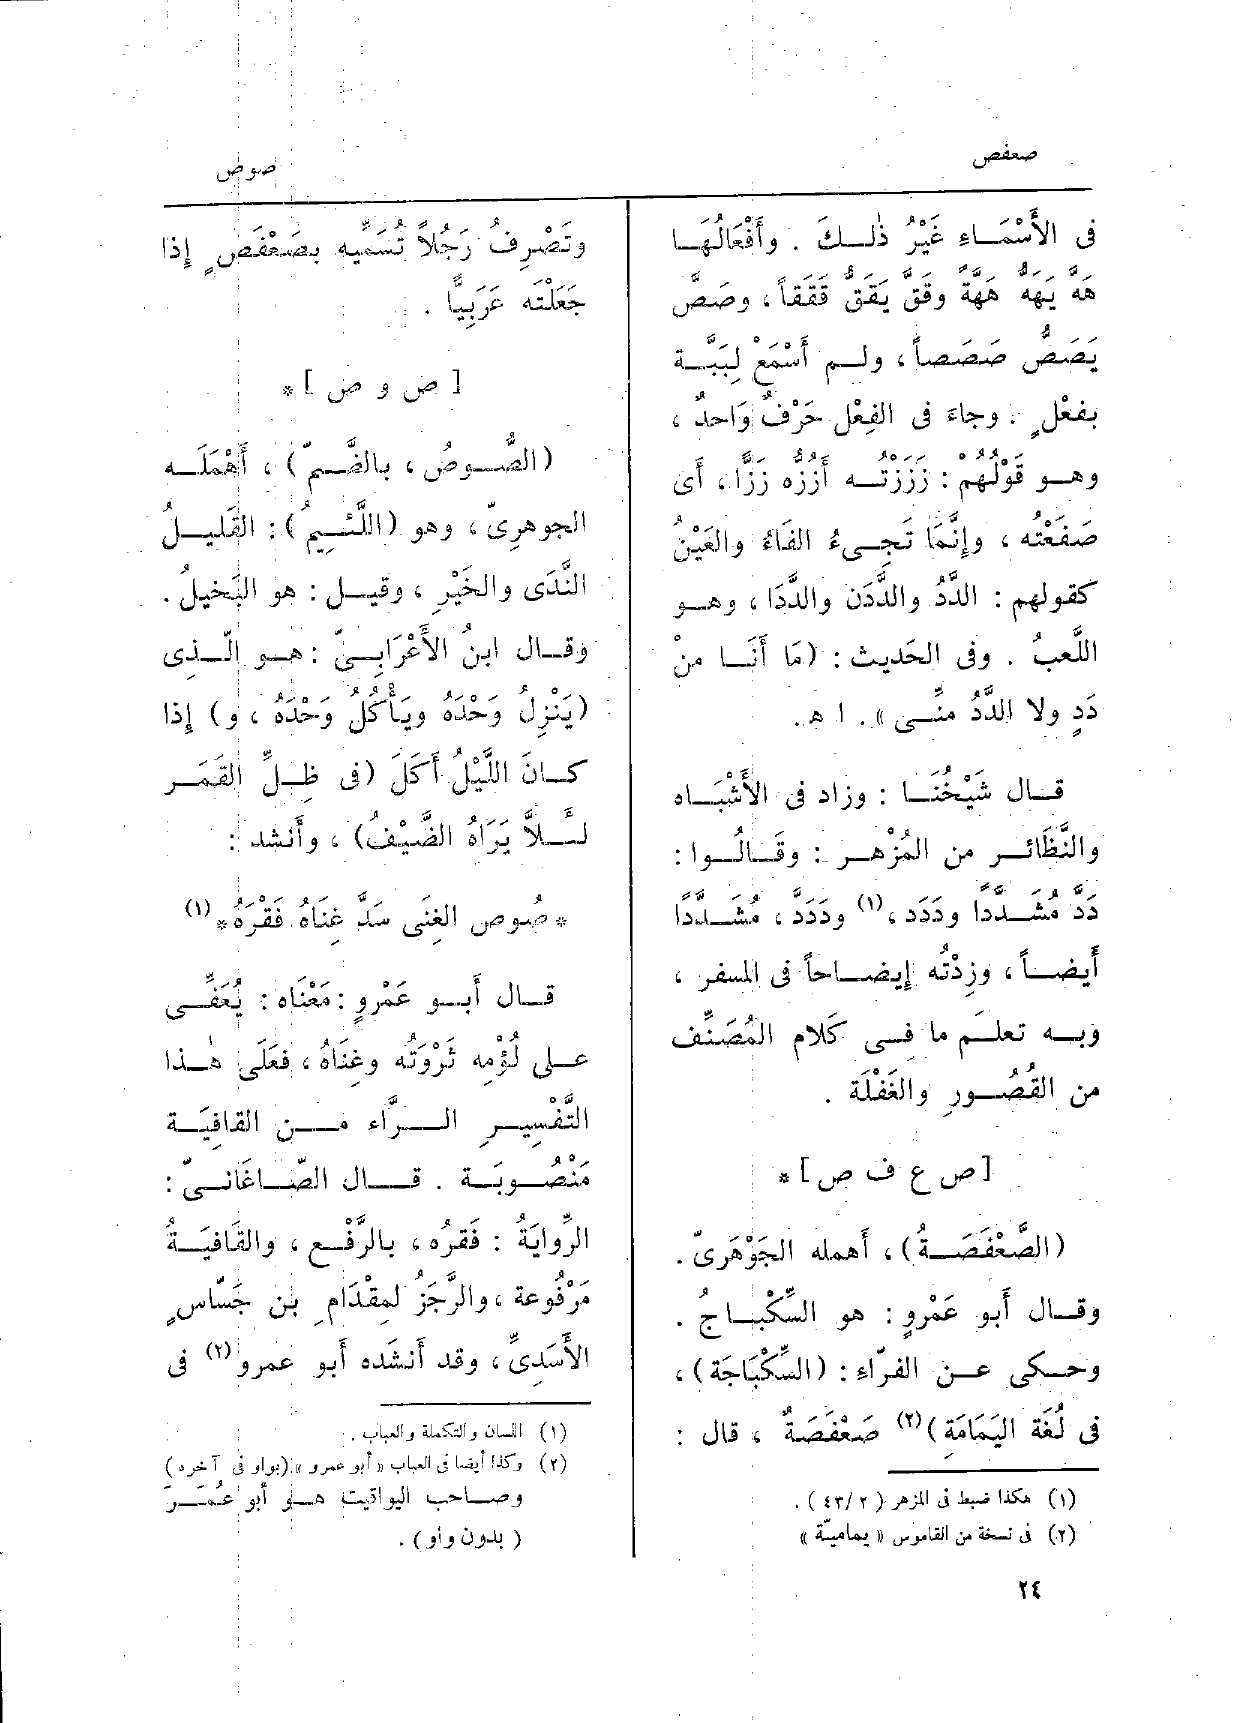 صعفص
صوص
فى الأَسْمَـاءِ غَيْرُ ذٰلـكَ . وأَفْعَالُهَـا
هَهَّ يَهَهُّ هَهَّةً وقَقَّ يَقَقُّ قَقَقاً ، وصَصَّ
يَصَصُّ صَصَصاً ، ولـم أَسْمَعْ لِبَبَّـة
بفِعْلٍ . وجاءَ فى الفِعْل حَرْفٌ وَاحدٌ ،
وهـو قَوْلُهم : زَزَزْتُـه أَزُزُّه زَزًّا ، أَى
صَفَعْتُه ، وإِنَّمَا تَجِـىءُ الفَاءُ والعَيْنُ
كقولهم : الدَّدُ والدَّدَن والدَّدَا ، وهـو
اللَّعبُ . وفى الحَديث : (مَا أَنَـا منْ
دَدٍ ولا الدَّدُ منِّـى » . ا ه .
قـال شَيْخُنَـا : وزاد فى الأَشْبَـاه
والنَّظَائـر من المُزْهـر : وقَـالُـوا :
دَدَّ مُشَـدَّدًا ودَدَد ، (١) ودَدَدَّ ، مُشَـدَّدًا
أَيضـاً ، وزِدْتُه إِيضـاحاً فى المسفر ،
وبـه تعلَـم ما فـى كَلَام المُصَنِّف
من القُصُـورِ والغَفْلَة .
[ ص ع ف ص ] *
(الصَّعْفَصَـةُ) ، أَهمله الجَوْهَرىّ .
وقـال أَبو عَمْرٍو : هو السِّكْبـاجُ .
وحـكى عـن الفرّاءِ : (السِّكْبَاجَة) ،
فى لُغَة اليَمَامَة) (٢) صَعْفَصَةٌ ، قال :
(١) هكذا ضبط فى المزهر ( ٢ /٤٣ ) .
(٢) فى نسخة من القاموس « يماميّة »
وتَصْرِفُ رَجُلاً تُسَمِّيه بصَعْفَصٍ إِذا
جَعَلْتَه عَرَبِيًّا .
[ ص و ص ] *
(الصُّـوصُ ، بالضَّـمّ) ، أَهْمَلَـه
الجوهرىّ ، وهو (اللَّئـيمُ) : القَليـلُ
النَّدَى والخَيْرِ ، وقيـل : هو البَخيلُ .
وقـال ابنُ الأَعْرَابـىّ : هـو الّـذى
(يَنْزِلُ وَحْدَهُ ويَأْكُلُ وَحْدَهُ ، و) إِذا
كـانَ اللَّيْلُ أَكَلَ (فى ظِـلِّ القَمَـر
لـئَـلَّا يَرَاهُ الضَّيْفُ) ، وأَنشد :
* صُوص الغِنَى سَدَّ غِنَاهُ فَقْرَهُ * (١)
قـال أَبـو عَمْرٍو : مَعْنَاه : يُعَفِّـى
عـلى لُؤْمِه ثَرْوَتُه وغِنَاهُ ، فعَلَى هٰـذا
التَّفْسِيـرِ الـرَّاء مـن القافِيَـة
مَنْصُـوبَـة . قـال الصّـاغَانـىّ :
الرِّوايَةُ : فَقرُه ، بالرَّفْـع ، والقَافيَـةُ
مَرْفُوعة ، والرَّجَزُ لمِقْدَامِ بن جَسّاسٍ
الأَسَدِىِّ ، وقد أَنشده أَبو عمرو (٢) فى
(١) اللسان والتكملة والعباب .
(٢) وكذا أيضا فى العباب « أبو عمرو » (بواو فى آخره)
وصـاحب اليواقيت هـو أبو عُمَـرَ
( بدون واو ) .
٢٤